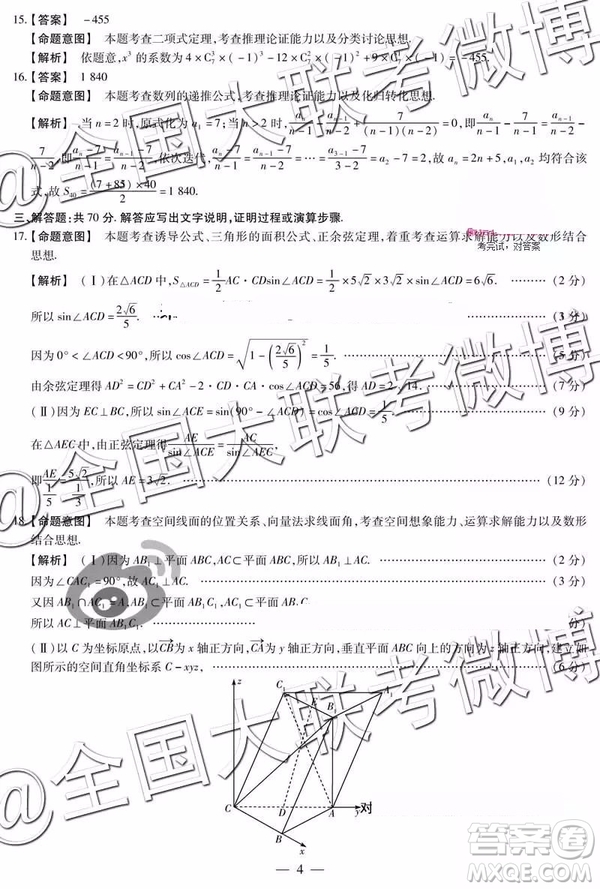 15.【答案】 -455
【命题意图】 本题考查二项式定理,考查推理论证能力以及分类讨论思想.
【解析】 依题意,x³ 的系数为 4×C
16.【答案】 1 840
【命题意图】 本题考查数列的递推公式,考查推理论证能力以及化归转化思想.
【解析】 当 n=2 时,原式化为 a₁=7;当 n≥2 时,
式,故 S₄₀=(7+85)×40/2=1 840.
三、解答题:共 70 分.解答应写出文字说明,证明过程或演算步骤.
17.【命题意图】 本题考查诱导公式、三角形的面积公式、正余弦定理,着重考查运算求解能力以及数形结合
思想.
考完试,对答案
【解析】 (Ⅰ)在△ACD 中,S△ACD=1/2 AC·CDsin∠ACD=1/2×5√2×3√2×sin∠ACD=6√6. (2 分)
所以 sin∠ACD=2√6/5. (3 分)
因为 0°<∠ACD<90°,所以 cos∠ACD=√(1-(2√6/5)²)=1/5. (5 分)
由余弦定理得 AD²=CD²+CA²-2·CD·CA·cos∠ACD=56,得 AD=2√14.
(Ⅱ)因为 EC⊥BC,所以 sin∠ACE=sin(90°-∠ACD)=cos∠ACD=1/5. (9 分)
在△AEC 中,由正弦定理得 AE/sin∠ACE=AC/sin∠AEC,
所以 AE=3√2. (12 分)
18.【命题意图】 本题考查空间线面的位置关系、向量法求线面角,考查空间想象能力、运算求解能力以及数形
结合思想.
【解析】 (Ⅰ)因为 AB₁⊥平面 ABC,AC⊂平面 ABC,所以 AB₁⊥AC. (2 分)
因为∠CAC₁=90°,故 AC₁⊥AC. (3 分)
又因 AB₁∩AC₁=A,AB₁⊂平面 AB₁C₁,AC₁⊂平面 AB₁C₁,
所以 AC⊥平面 AB₁C₁.
(Ⅱ)以 C 为坐标原点,以CB为 x 轴正方向,CA为 y 轴正方向,垂直平面 ABC 向上的方向为 z 轴正方向,建立如
图所示的空间直角坐标系 C-xyz, (6 分)
z
C₁
A₁
E
B₁
C
D
A
y
对
B
x
— 4 —
@全国大联考微博
@全国大联考微博
@全国大联考微博
答案圈